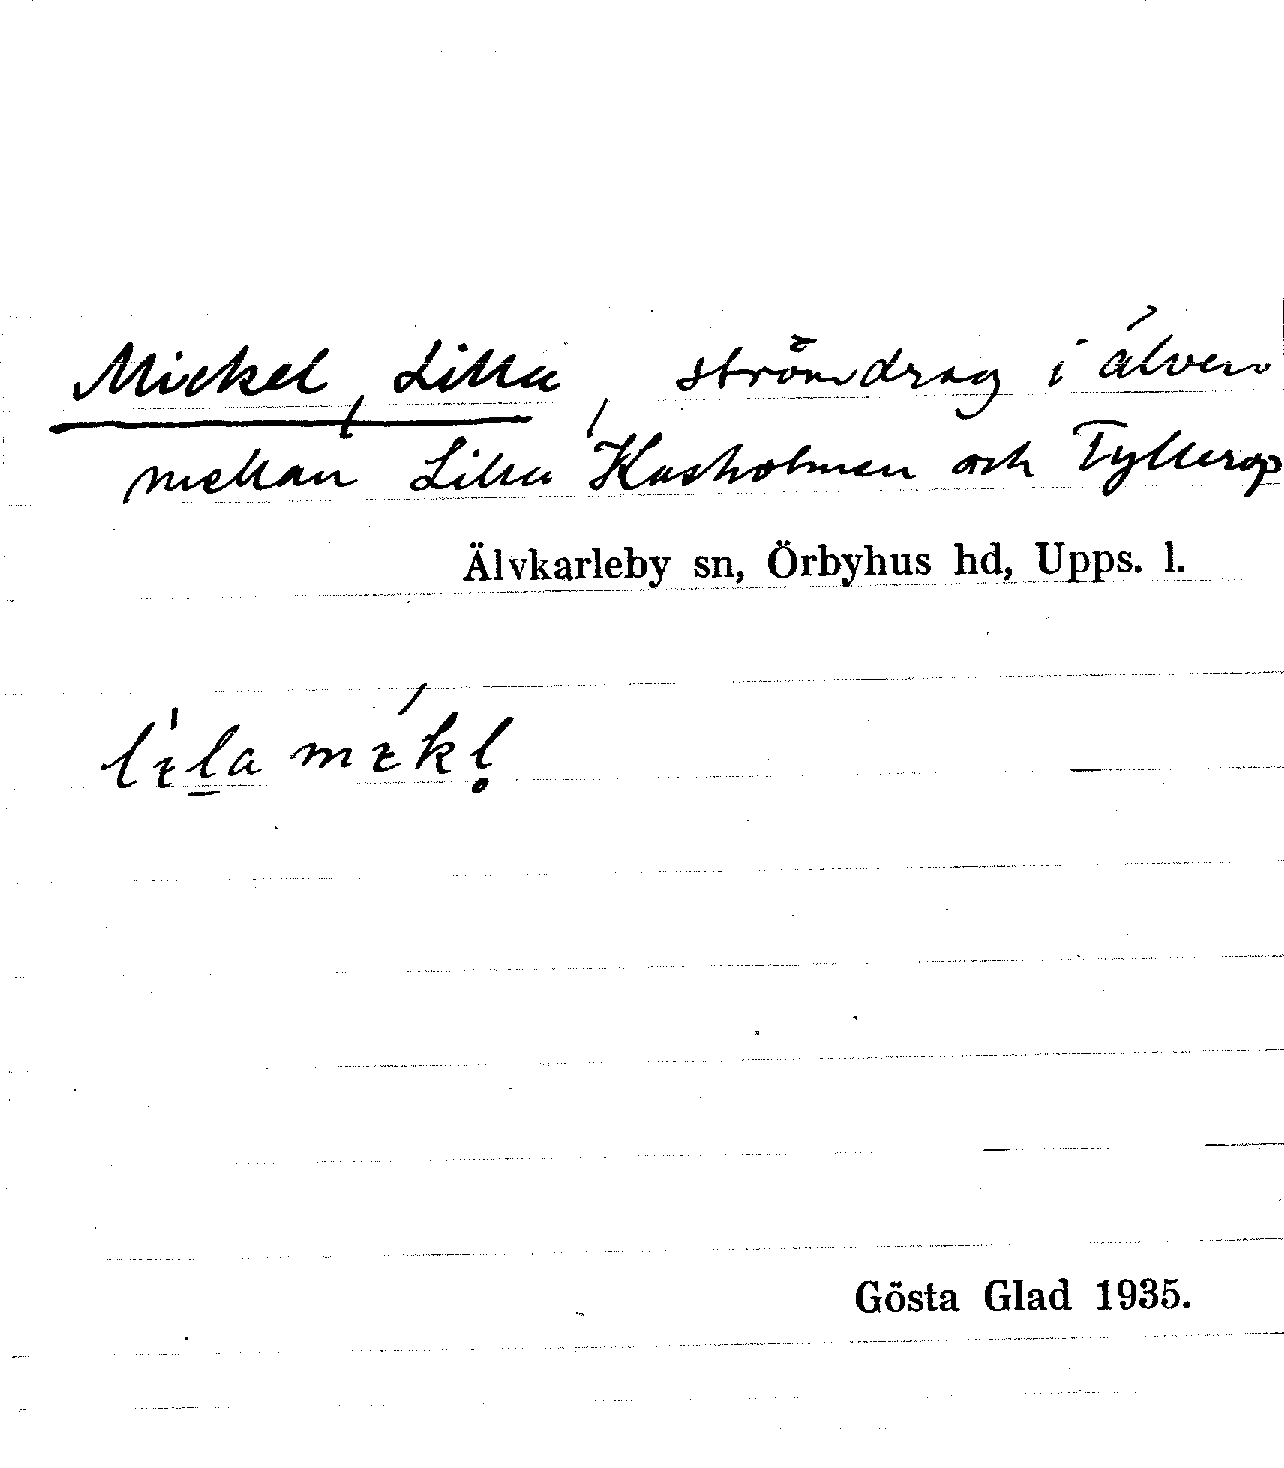 Mickel, Lilla, strömdrag i älven
mellan Lilla Kasholmen och Tyllerop
Älvkarleby sn, Örbyhus hd, Upps. l.
Gösta Glad 1935.